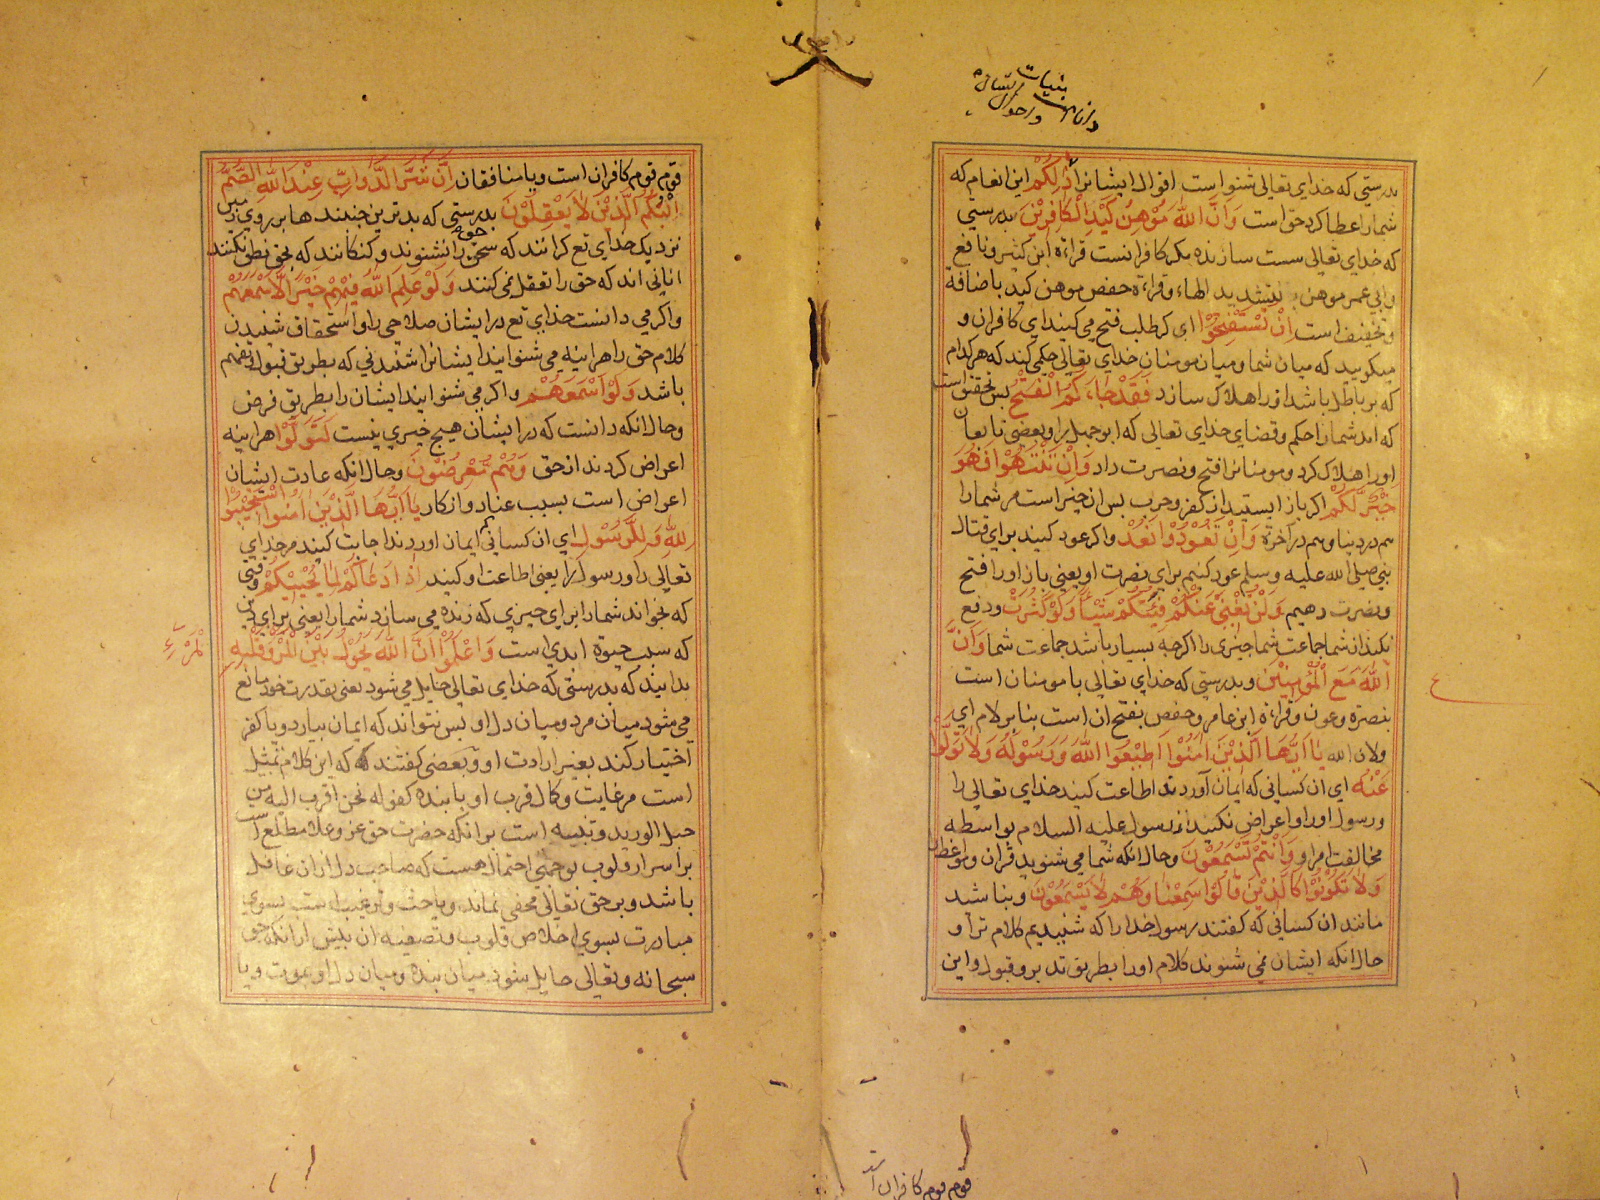 بنیات
دانا است واحوال ایشان
بدرستی که خدای تعالی شنوا است اقوال ایشانرا ذَلِکُمْ این انعام که
شمارا عطا کرد حق است وَاَنَّ اللّٰهَ مُوْهِنُ کَیْدِ الْکَافِرِیْنَ بدرستی
که خدای تعالی سست سازنده مکر کافرانست قراءة ابن کثیر و نافع
وابی عمر موهن بتشدید الهاء وقراءة حفص موهن کید باضافة
وتخفیف است اِنْ تَسْتَفْتِحُوْا ای کر طلب فتح می کنید ای کافران و
میکویید که میان شما ومیان مومنان خدای تعالی حکمی کند که هر کدام
که بر باطل باشد اورا هلاک سازد فَقَدْ جَاءَکُمُ الْفَتْحُ بس تحقیق است
که امد شمارا حکم وقضای خدای تعالی که ابوجهل را وبعضی تابعان
اورا هلاک کرد ومومنانرا فتح ونصرت داد وَاِنْ تَنْتَهُوْا فَهُوَ
خَیْرٌ لَّکُمْ اکر باز ایستید از کفر وحرب بس ان خیر است مر شمارا
هم در دنیا وهم در آخرة وَاِنْ تَعُوْدُوْا نَعُدْ واکر عود کنید برای قتال
نبی صلی الله علیه وسلم عود کنیم برای نصرت او یعنی باز اورا فتح
ونصرت دهیم وَلَنْ تُغْنِیَ عَنْکُمْ فِئَتُکُمْ شَیْئًا وَلَوْ کَثُرَتْ ودفع
نکند از شما جماعت شما چیزی را اکرچه بسیار باشد جماعت شما وَاَنَّ
اللّٰهَ مَعَ الْمُؤْمِنِیْنَ وبدرستی که خدای تعالی با مومنان است
بنصرة وعون وقراءة ابن عامر وحفص بفتح ان است بنا بر لام ای
ولان الله یَا اَیُّهَا الَّذِیْنَ اٰمَنُوْا اَطِیْعُوا اللّٰهَ وَرَسُوْلَهٗ وَلَا تَوَلَّوْا
عَنْهُ ای ان کسانی که ایمان آوردند اطاعت کنید خدای تعالی را
ورسول اورا واعراض نکنید از رسول علیه السلام بواسطه
مخالفت امر او وَاَنْتُمْ تَسْمَعُوْنَ وحال انکه شما می شنوید قران ومواعظ
وَلَا تَکُوْنُوْا کَالَّذِیْنَ قَالُوْا سَمِعْنَا وَهُمْ لَا یَسْمَعُوْنَ وبناشد
مانند ان کسانی که کفتند رسول خدارا که شنیدیم کلام ترا و
حال انکه ایشان نمی شنوند کلام اورا بطریق تدبر وقبول واین
ع
قوم قوم کافران است
قوم قوم کافران است ویا منافقان اِنَّ شَرَّ الدَّوَابِّ عِنْدَ اللّٰهِ الصُّمُّ
الْبُکْمُ الَّذِیْنَ لَا یَعْقِلُوْنَ بدرستی که بدترین جنبندها بر روی زمین
نزدیک خدای تع کرانند که سخن حق را نشنوند وکنکانند که بحق نطق نکنند
انانی اند که حق را تعقل نمی کنند وَلَوْ عَلِمَ اللّٰهُ فِیْهِمْ خَیْرًا لَّاَسْمَعَهُمْ
واکر می دانست خدای تع در ایشان صلاحی را واستحقاق شنیدن
کلام حق را هراینه می شنوایند ایشانرا شنیدنی که بطریق قبول وتفهم
باشد وَلَوْ اَسْمَعَهُمْ واکر می شنوایند ایشان را بطریق فرض
وحال انکه دانست که در ایشان هیچ خیری نیست لَتَوَلَّوْا هراینه
اعراض کردند از حق وَهُمْ مُعْرِضُوْنَ وحال انکه عادت ایشان
اعراض است بسبب عناد وانکار یَا اَیُّهَا الَّذِیْنَ اٰمَنُوا اسْتَجِیْبُوْا
لِلّٰهِ وَلِلرَّسُوْلِ ای ان کسانی که ایمان اوردند اجابت کنید مر خدای
تعالی را ورسول را یعنی اطاعت او کنید اِذَا دَعَاکُمْ لِمَا یُحْیِیْکُمْ وقتی
که بخواند شمارا برای چیزی که زنده می سازد شمارا یعنی برای دین
که سبب حیوة ابدی است وَاعْلَمُوْا اَنَّ اللّٰهَ یَحُوْلُ بَیْنَ الْمَرْءِ وَقَلْبِهٖ
الْمَرْءِ
بدانید که بدرستی که خدای تعالی حایل می شود یعنی بقدرت خود مانع
می شود میان مرد ومیان دل او بس نتواند که ایمان بیارد ویا کفر
اختیار کند بغیر ارادت او وبعضی کفتند که این کلام تمثیل
است مر غایت وکمال قرب او با بنده کقوله نحن اقرب الیه من
حبل الورید وتنبیه است برانکه حضرت حق عز وعلا مطلع است
بر اسرار قلوب بوجهی احتمال هست که صاحب دل ازان غافل
باشد وبر حق تعالی مخفی نماند ویا حث وترغیب است بسوی
مبادرت بسوی اخلاص قلوب وتصفیه ان بیش ازانکه حق
سبحانه وتعالی حایل شود میان بنده ومیان دل او بموت ویا